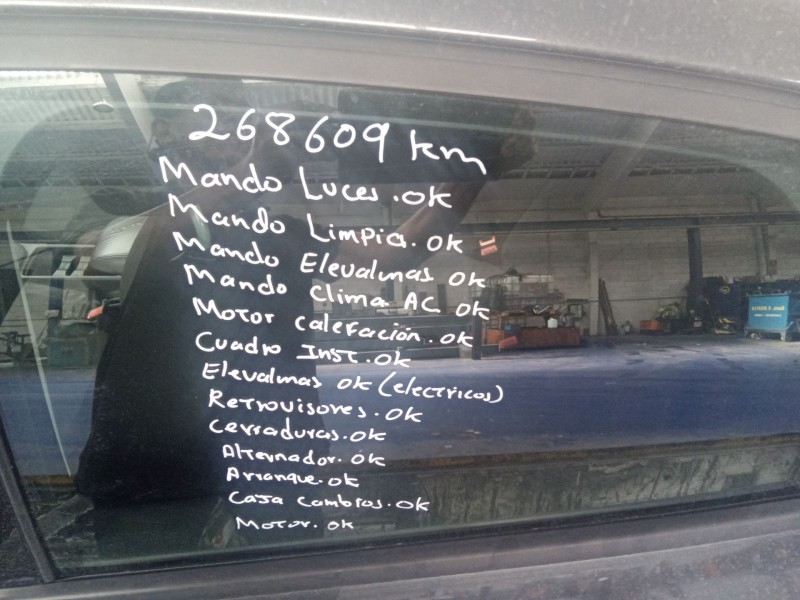 268609 km
Mando Luces.ok
Mando Limpia.ok
Mando Elevalunas ok
Mando Clima AC ok
Motor calefación.ok
Cuadro Inst.ok
Elevalunas ok (electricos)
Retrovisores.ok
Cerraduras.ok
Alternador.ok
Arranque.ok
Caja Cambios.ok
Motor.ok